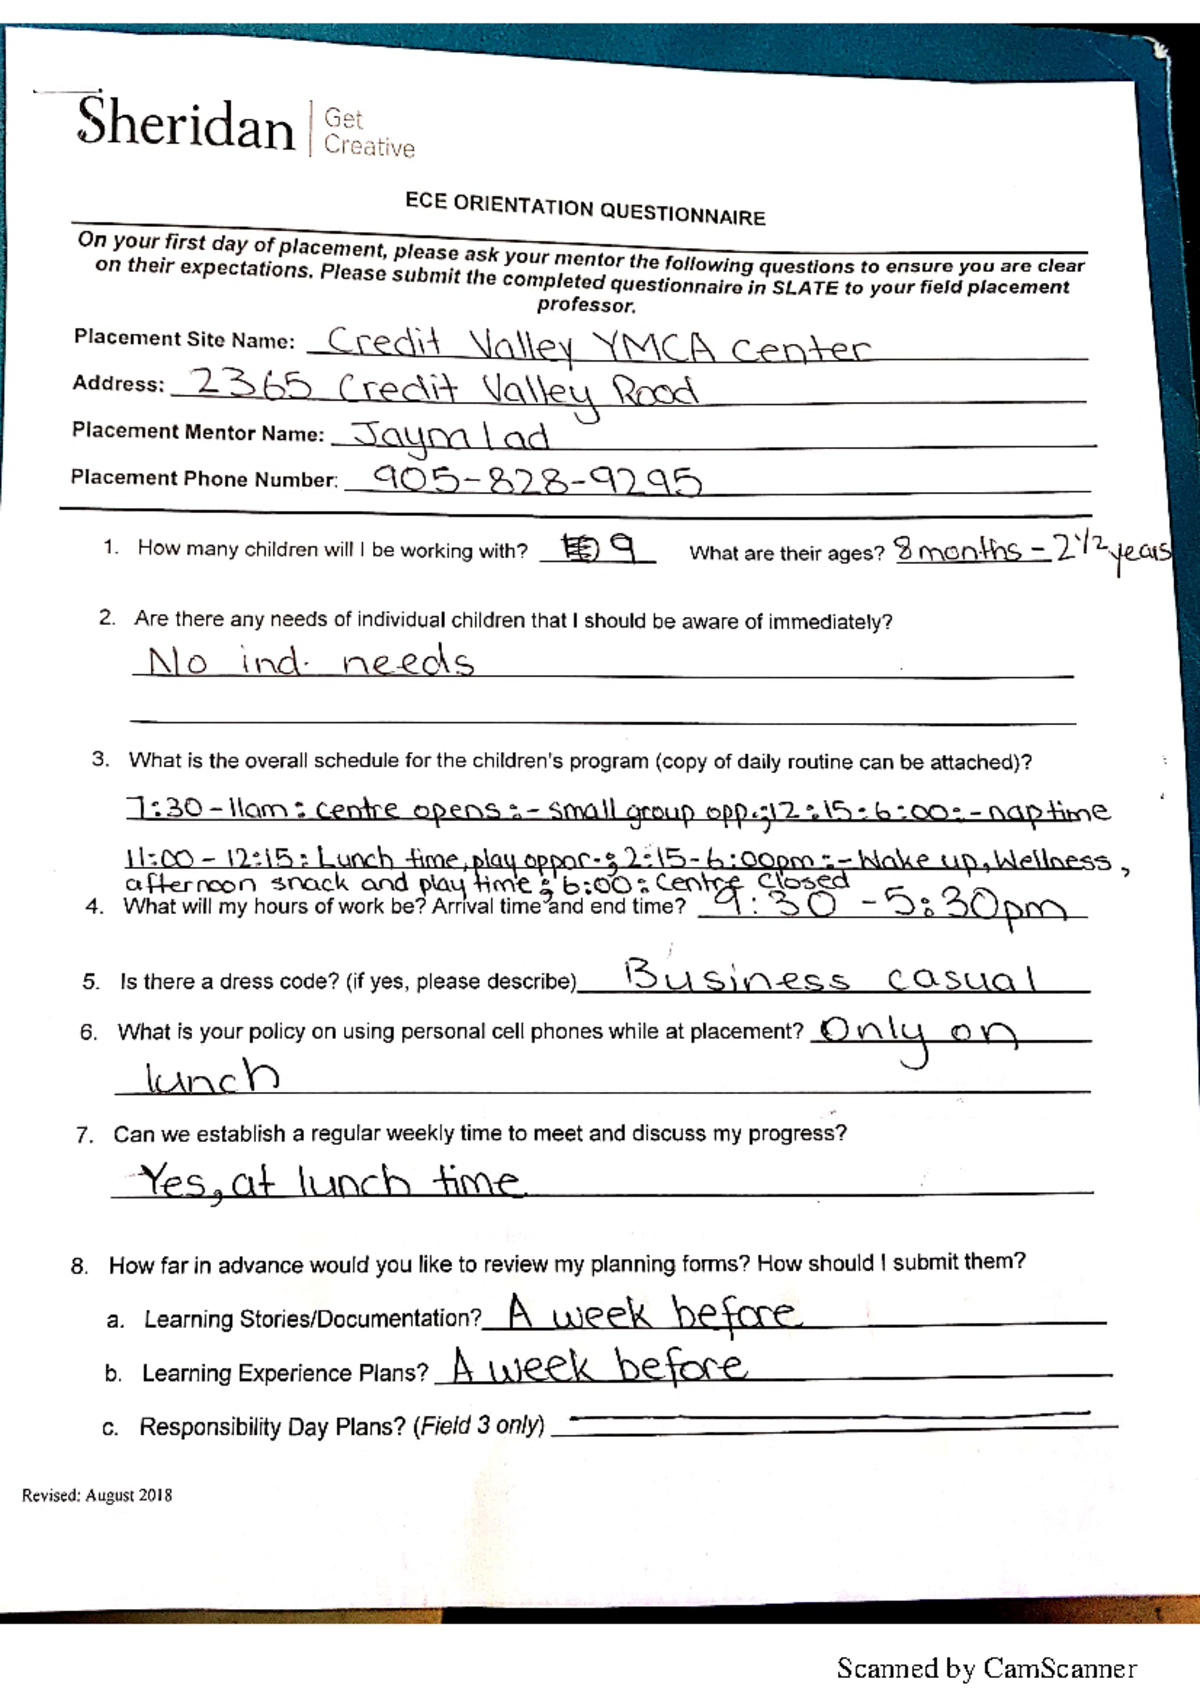 Sheridan | Get
Creative
ECE ORIENTATION QUESTIONNAIRE
On your first day of placement, please ask your mentor the following questions to ensure you are clear
on their expectations. Please submit the completed questionnaire in SLATE to your field placement
professor.
Placement Site Name: Credit Valley YMCA Center
Address: 2365 Credit Valley Road
Placement Mentor Name: Jaym Lad
Placement Phone Number: 905-828-9295
1. How many children will I be working with? 9 What are their ages? 8 months - 2 1/2 years
2. Are there any needs of individual children that I should be aware of immediately?
No ind. needs
3. What is the overall schedule for the children's program (copy of daily routine can be attached)?
7:30-11am: centre opens:- small group opp.;12:15:6:00:- nap time
11:00 - 12:15: Lunch time, play oppor.; 2:15-6:00pm:- Wake up, Wellness,
afternoon snack and play time; 6:00: Centre Closed
4. What will my hours of work be? Arrival time and end time? 9:30 - 5:30pm
5. Is there a dress code? (if yes, please describe) Business casual
6. What is your policy on using personal cell phones while at placement? Only on
lunch
7. Can we establish a regular weekly time to meet and discuss my progress?
Yes, at lunch time
8. How far in advance would you like to review my planning forms? How should I submit them?
a. Learning Stories/Documentation? A week before
b. Learning Experience Plans? A week before
c. Responsibility Day Plans? (Field 3 only)
Revised: August 2018
Scanned by CamScanner